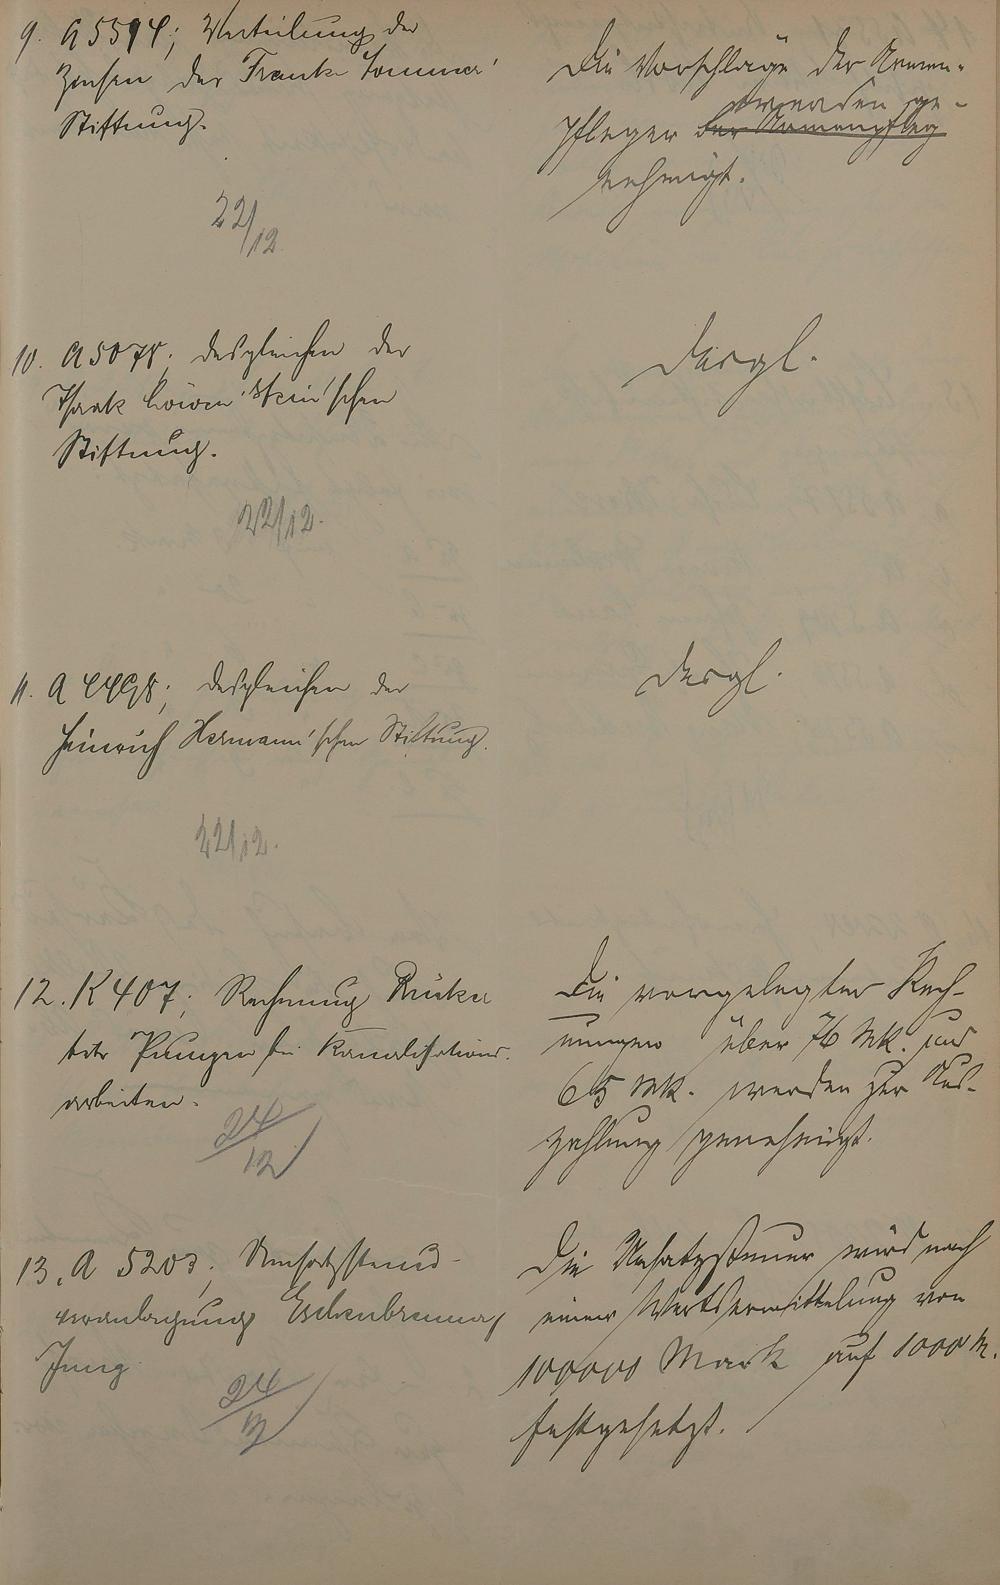 9. A 5594; Verteilung der
Zinsen der Frank Sommer'
Stiftung.
22/12
Die Vorschläge der Armen-
pfleger der Armenpfleg werden ge-
nehmigt.
10. A 5078. desgleichen der
Isaak Löwen'stein'schen
Stiftung.
22/12.
Desgl.
11. A 4498; desgleichen der
Heinrich Hermann'schen Stiftung.
22/12.
Desgl.
12. K 407; Rechnung
Kanalisations-
arbeiten.
24/12
Die vorgelegten Rech-
nungen über 76 Mk. und
65 Mk. werden zur Aus-
zahlung genehmigt.
13. A 5203; Umsatzsteuer-
veranlagung Eschenbrenner,
Jung
24/12
Die Umsatzsteuer wird nach
einer Wertsermittelung von
100000 Mark auf 1000 M.
festgesetzt.